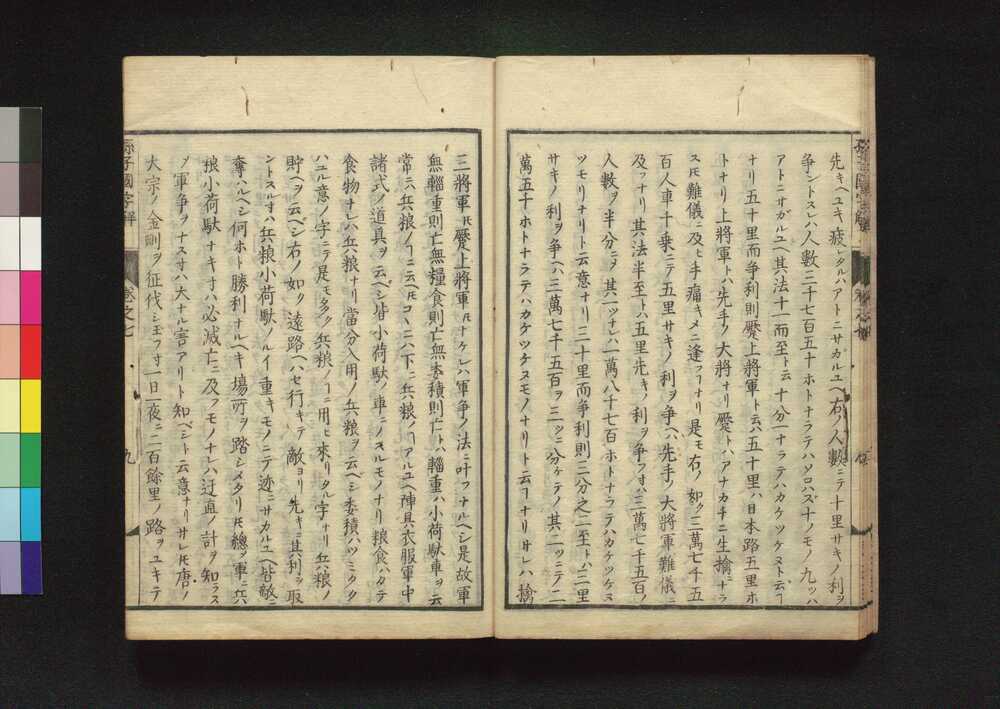 先キヘユキ疲レタルハアトニサカルユヘ右ノ人數ニテ十里サキノ利ヲ
争ントスレハ人數三千七百五十ホトナラテハソロハズナノモノ九ツハ
アトニサガルユヘ其法十一而至ト云十分一ナラテハカケツケスト云ヿ
ナリ五十里而争利則蹷上將軍ト云ハ五十里ハ日本路五里ホ
トナリ上將軍トハ先手ノ大將ナリ蹷トハアナカチニ生擒ニナラ
スㇳモ難儀ニ及ヒ手痛キメニ逢フヿナリ是モ右ノ如ク三萬七千五
百人車十乘ニテ五里サキノ利ヲ争ヘハ先手ノ大將軍難儀ニ
及フナリ其法半至トハ五里先キノ利ヲ争フ寸ハ三萬七千五百ノ
人數ヲ半分ニシテ其一ツナレハ一萬八千七百ホトナラテハカケツケヌ
ツモリナリト云意ナリ三十里而争利則三分之二至トハ三里
サキノ利ヲ争ヘハ三萬七千五百ヲ三ツニ分ケテノ其二ツニテ二
萬五千ホトナラテハカケツケヌモノナリト云ヿナリサレハ擒
三將軍ㇳモ蹷上將軍ㇳモナケレハ軍争ノ法ニ叶フナルヘシ是故軍
無輜重則亡無糧食則亡無委積則亡トハ輜重ハ小荷駄車ヲ云
常ニハ兵粮ノヿニ云ヘㇳモコヽニハ下ニ兵粮ノヿアルユヘ陣具衣服軍中
諸式ノ道具ヲ云ベシ皆小荷駄ノ車ニノスルモノナリ粮食ハカテ
食物ナレハ兵粮ナリ當分入用ノ兵粮ヲ云ベシ委積ハツミタク
ハユル意ノ字ニテ是モ多ク兵粮ノヿニ用ヒ來リタル字ナリ兵粮ノ
貯ヘヲ云ベシ右ノ如ク遠路ヘハセ行キテ敵ヨリ先キニ其利ヲ取
ントスル寸ハ兵粮小荷駄ノルイ重キモノニテ迹ニサカルユヘ皆敵ニ
奪ハルヘシ何ホト勝利ナルヘキ場所ヲ踏シメタリㇳモ總ヲ軍ニ兵
粮小荷駄ナキ寸ハ必滅亡ニ及フモノナレハ迂直ノ計ヲ知ラス
ノ軍争ヲナス寸ハ大ナル害アリト知ベシト云意ナリサレㇳモ唐ノ
大宗ノ金剛ヲ征伐シ玉フ寸一日一夜ニ二百餘里ノ路ヲユキテ
孫子國字解
卷之七
九